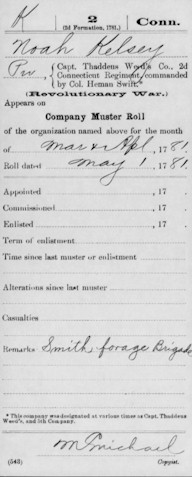 K 2 Conn.
(2d Formation, 1781.)
Noah Kelsey
Pvt, Capt. Thaddeus Weed's Co., 2d
Connecticut Regiment, commanded
by Col. Heman Swift.*
(Revolutionary War.)
Appears on
Company Muster Roll
of the organization named above for the month
of Mar & Apl, 1781.
Roll dated May 1, 1781.
Appointed , 17 .
Commissioned , 17 .
Enlisted , 17 .
Term of enlistment
Time since last muster or enlistment
Alterations since last muster
Casualties
Remarks: Smith, forage Brigade
* This company was designated at various times as Capt. Thaddeus
Weed's, and 5th Company.
McMichael
(543) Copyist.